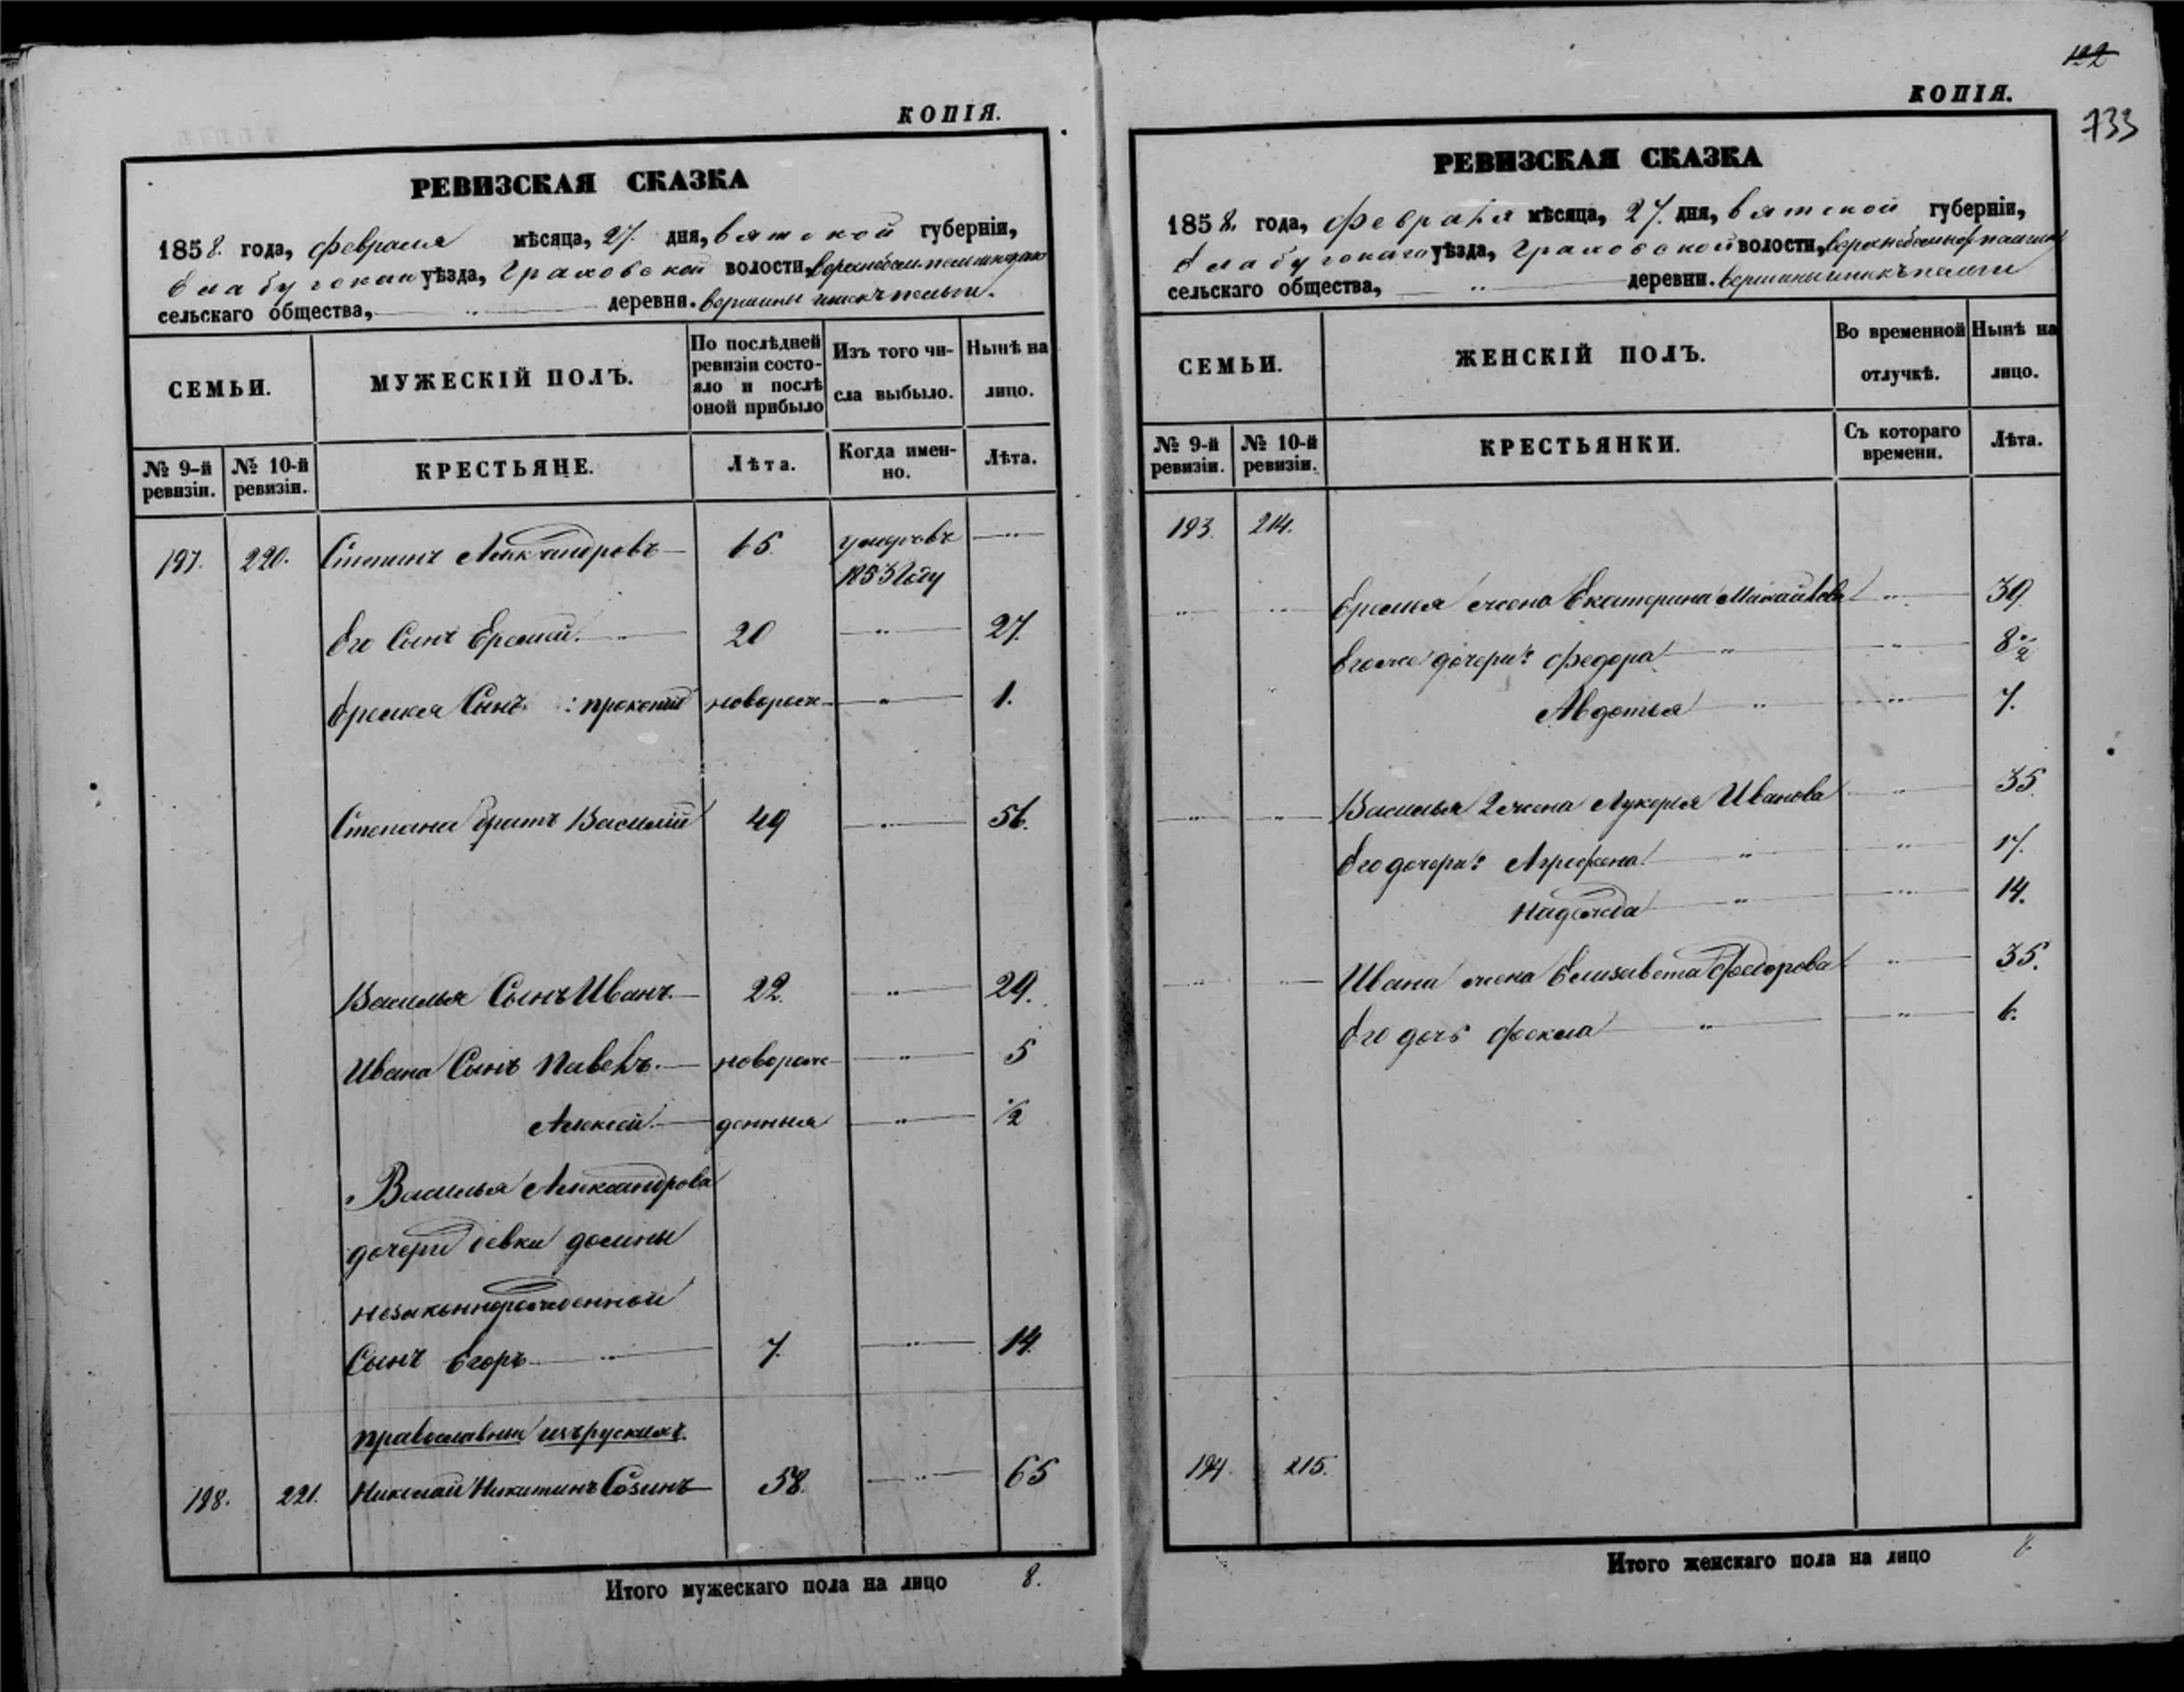 КОПІЯ.
РЕВИЗСКАЯ СКАЗКА
1858. года, февраля мѣсяца, 27. дня, вятской губерніи,
Елабугскаго уѣзда, Граховской волости,
сельскаго общества, деревня. вершины
СЕМЬИ.
МУЖЕСКІЙ ПОЛЪ.
По послѣдней ревизіи состояло и послѣ оной прибыло
Изъ того числа выбыло.
Нынѣ на лицо.
№ 9-й ревизіи.
№ 10-й ревизіи.
КРЕСТЬЯНЕ.
Лѣта.
Когда именно.
Лѣта.
197. 220. Степанъ Александровъ 65. умеръ въ
1853 году
Его Сынъ Еремей. 20 27.
Еремея Сынъ: прокопий новорож 1.
Степана братъ Василій 49 56.
Василья Сынъ Иванъ. 22. 29.
Ивана Сынъ Павелъ. новорож 5
Алексей. денныя 1/2
Василья Александрова
дочери девки домны
незаконнорожденной
Сынъ Егоръ 7. 14.
православныя изъ рускихъ.
198. 221. Николай Никитинъ Созинъ 58. 65
Итого мужескаго пола на лицо 8.
122
733
КОПІЯ.
РЕВИЗСКАЯ СКАЗКА
1858. года, февраля мѣсяца, 27. дня, вятской губерніи,
Елабугскаго уѣзда, Граховской волости,
сельскаго общества, деревни. вершины
СЕМЬИ.
ЖЕНСКІЙ ПОЛЪ.
Во временной отлучкѣ.
Нынѣ на лицо.
№ 9-й ревизіи.
№ 10-й ревизіи.
КРЕСТЬЯНКИ.
Съ котораго времени.
Лѣта.
193. 214.
Еремея жена Екатерина Михайлова 39.
Егоже дочери: Федора 8 1/2
Авдотья 7.
Василья 2 жена Лукерья Иванова 35
Его дочери: Агрофена 17.
Надежда 14.
Ивана жена Елизавета Федорова 35.
Его дочь фокла 6.
194. 215.
Итого женскаго пола на лицо